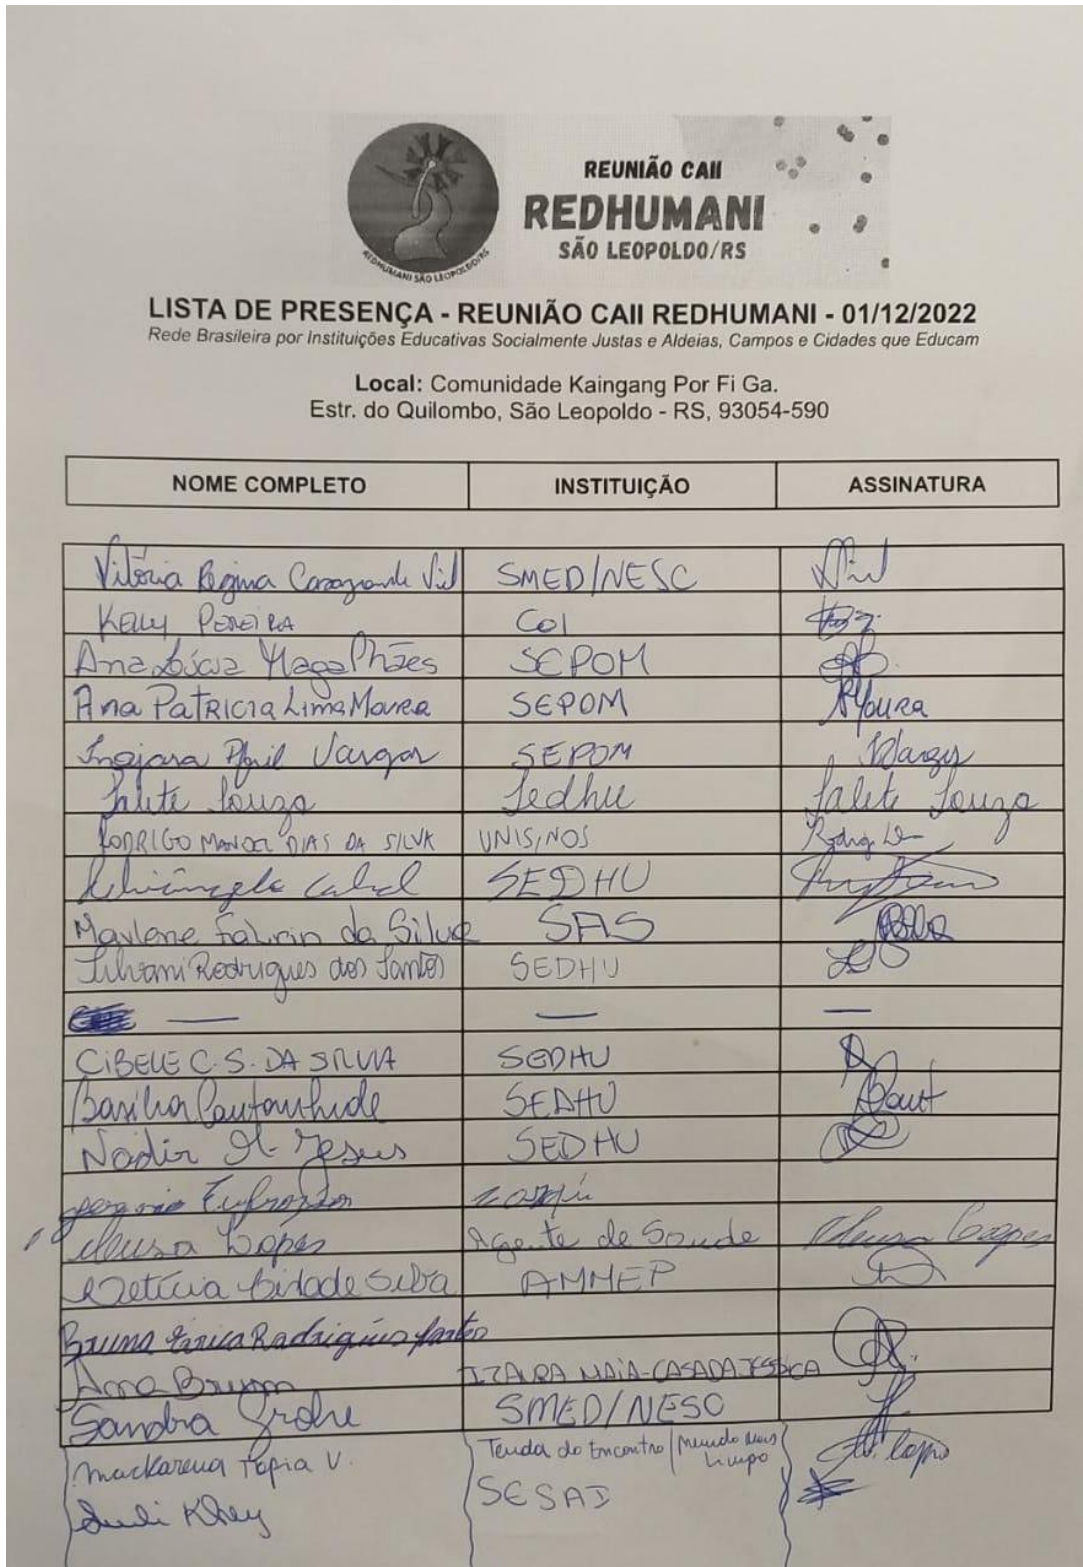 REUNIÃO CAII
REDHUMANI
SÃO LEOPOLDO/RS
REDHUMANI SÃO LEOPOLDO/RS
LISTA DE PRESENÇA - REUNIÃO CAII REDHUMANI - 01/12/2022
Rede Brasileira por Instituições Educativas Socialmente Justas e Aldeias, Campos e Cidades que Educam
Local: Comunidade Kaingang Por Fi Ga.
Estr. do Quilombo, São Leopoldo - RS, 93054-590
NOME COMPLETO INSTITUIÇÃO ASSINATURA
Vitória Regina Casagrande Viel SMED/NESC
Kelly PEREIRA Col
Ana Lúcia Magalhães SEPOM
Ana PATRICIA Lima Moura SEPOM AMoura
Vargas SEPOM
Salete Souza Sedhu Salete Souza
RODRIGO MANOEL DIAS DA SILVA UNISINOS
Cabral SEDHU
Marlene da Silva SAS
Silvani Rodrigues dos Santos SEDHU
—
— —
CIBELE C.S. DA SILVIA SEDHU
SEDHU
Nadir Jesus SEDHU
Lopes Agente de Saude Lopes
Letícia Silva AMMEP
Bruna Rodrigues
Ana Brum IZAURA MAIA-CASA DA JESSICA
Sandra Grohe SMED/NESC
Mackarena Tapia V. Tenda do Encontro / Mundo mais Limpo
SESAI